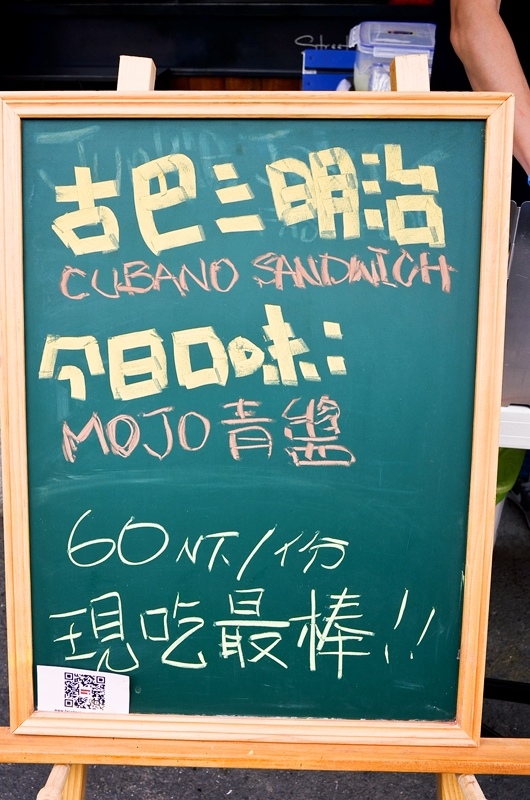 古巴三明治
CUBANO SANDWICH
今日口味:
MOJO 青醬
60 NT/份
現吃最棒!!